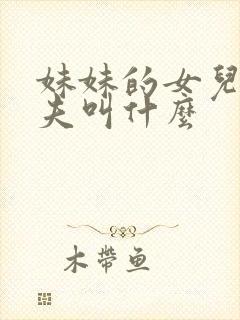 妹妹的女兒
夫叫什麼
木帶鱼